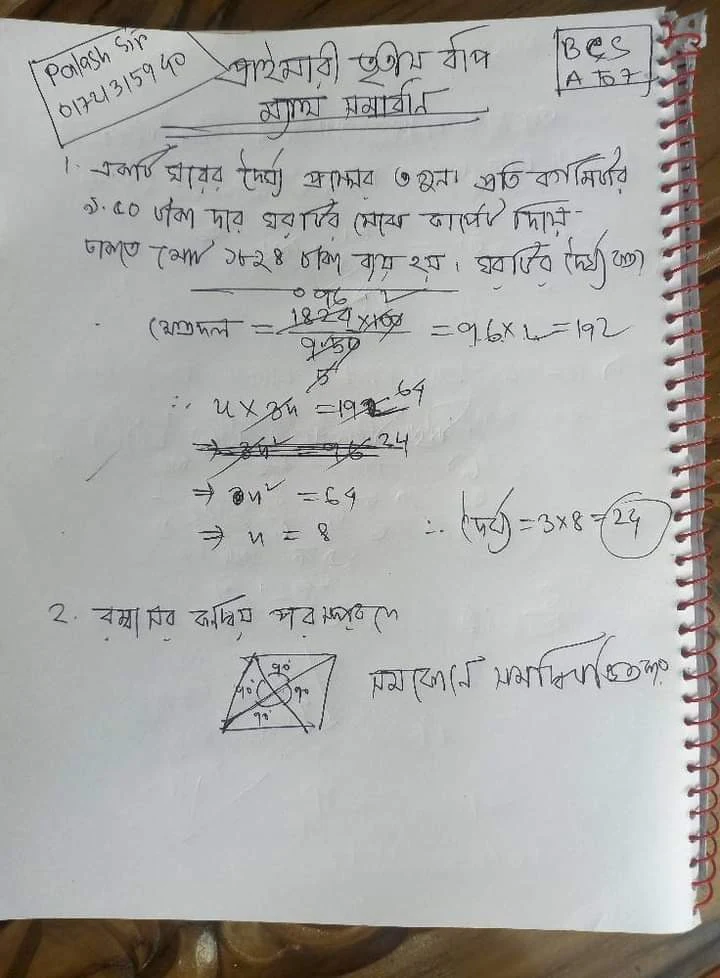 Palash Sir
BCS
A To Z
প্রাইমারী তৃতীয় ধাপ
ম্যাথ সমাধান
1. একটি ঘরের দৈর্ঘ্য প্রস্থের ৩ গুন। প্রতি বর্গমিটার
৯.৫০ টাকা দরে ঘরটির মেঝে কার্পেট দিয়ে
ঢাকতে মোট ১৮২৪ টাকা ব্যয় হয়। ঘরটির দৈর্ঘ্য কত?
ক্ষেত্রফল = 1824×100 = 96×2=192
9.50
5
∴ x × 3x = 192 64
24
⇒ x² = 64
⇒ x = 8 ∴ দৈর্ঘ্য = 3×8=24
2. রম্বসের কর্ণদ্বয় পরস্পরকে
90° 90° 90° 90°
সমকোণে সমদ্বিখণ্ডিত করে